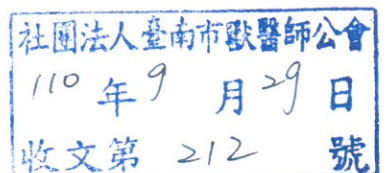 社團法人臺南市獸醫師公會
110年9月29日
收文第212號